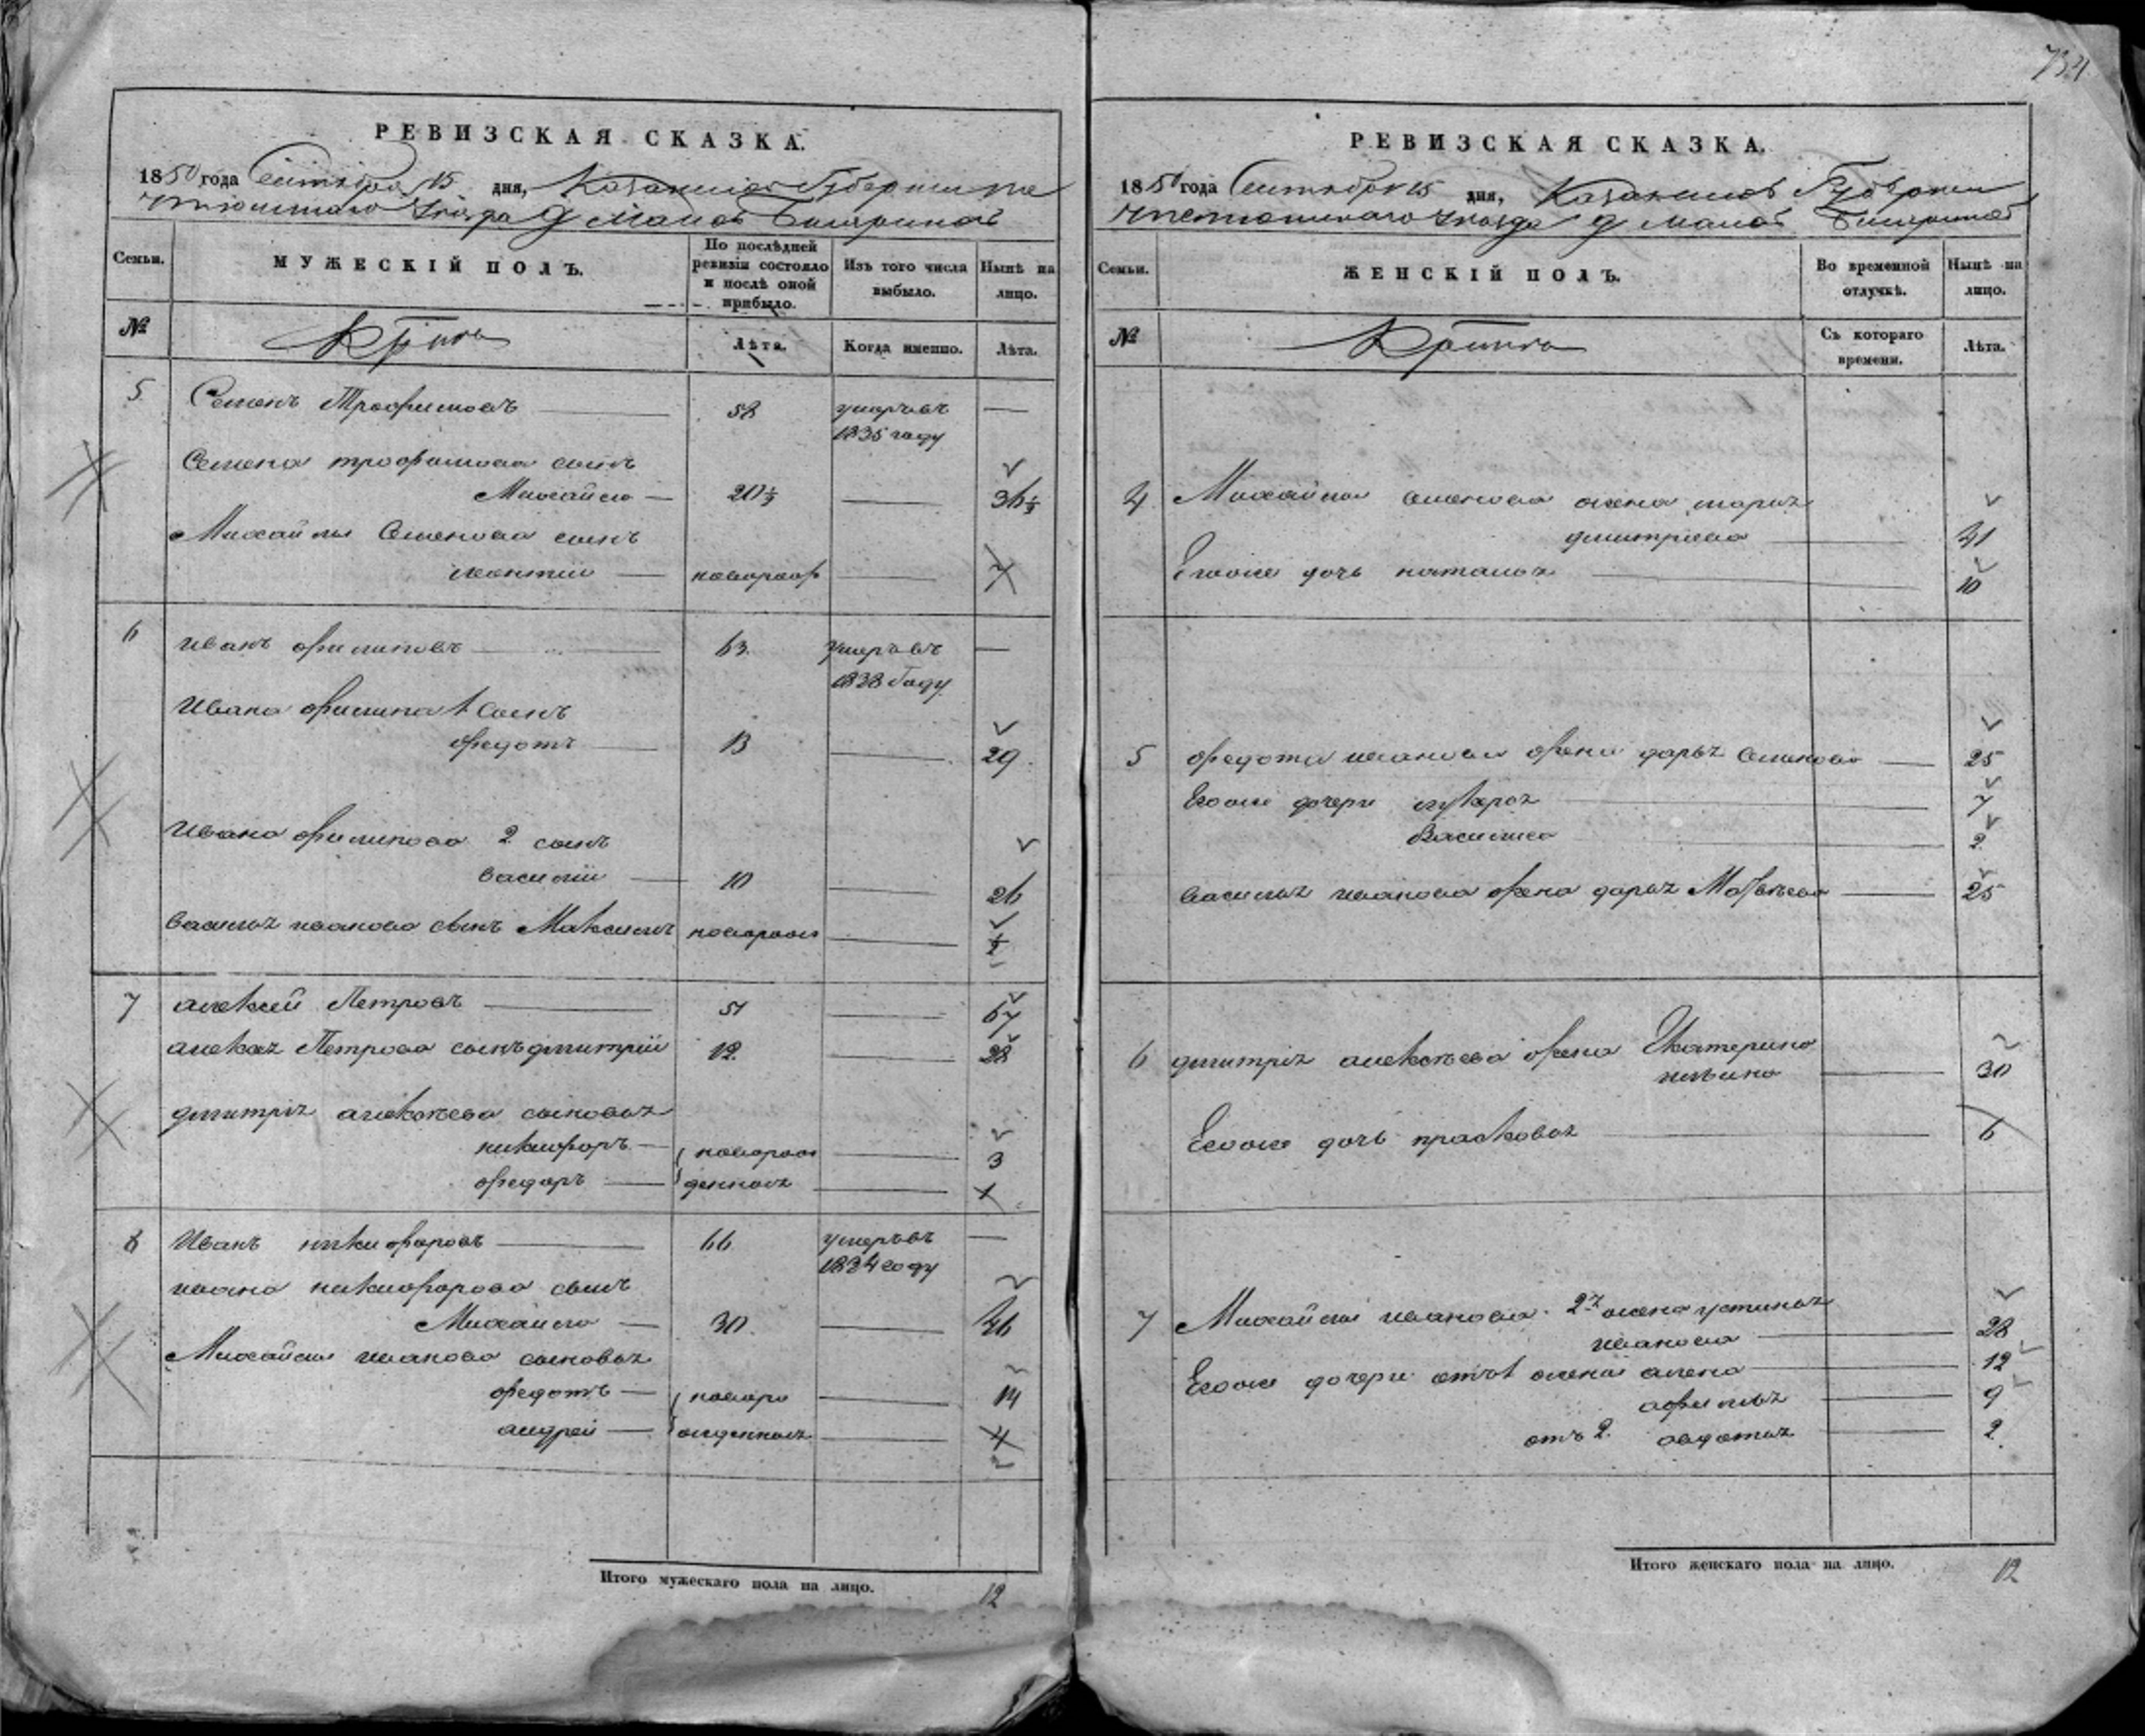 734
РЕВИЗСКАЯ СКАЗКА.
1850 года Сентября 15 дня, Казанской Губернии
Уѣзда д Малой
Семьи.
МУЖЕСКІЙ ПОЛЪ.
По послѣдней ревизіи состояло и послѣ оной прибыло.
Изъ того числа выбыло.
Нынѣ на лицо.
№
Лѣта.
Когда именно.
Лѣта.
5 Семенъ Трофимовъ 58 умеръ въ —
1835 году
Семена трофимова сынъ
Михайло — 20½ — 36½
Михайлы Семенова сынъ
леонтій — новорож — 7
6 иванъ филиповъ 63. умеръ въ —
1838 году
Ивана филипа 1 сынъ
федотъ 13 — 29.
Ивана филипова 2 сынъ
василій — 10 — 26
василья иванова сынъ Максимъ новорож — ½
7 алексей Петровъ 51 — 67
алексея Петрова сынъ дмитрій 12. — 28
дмитрія алексѣева сыновья
никифоръ — новорож — 3
федоръ — денныя — 1
8 Иванъ никифаровъ 66 умеръ въ —
1834 году
ивана никифорова сынъ
Михайло — 30. — 46
Михайлы иванова сыновья
федотъ — новоро — 14
андрей — жденныя — 4
Итого мужескаго пола на лицо. 12
РЕВИЗСКАЯ СКАЗКА.
1850 года Сентября 15 дня, Казанской Губернии
Уѣзда д малой
Семьи.
ЖЕНСКІЙ ПОЛЪ.
Во временной отлучкѣ.
Нынѣ на лицо.
№
Съ котораго времени.
Лѣта.
4 Михайлы семенова жена марья
дмитриева — 41
Евоже дочь наталья — 10
5 федота иванова жена дарья семенова — 25
Евоже дочери лукерья — 7
Василиса — 2
василья иванова жена дарья Матвѣева — 25
6 дмитрія алексѣева жена Екатерина
ильина — 30
Евоже дочь прасковья — 6
7 Михайлы иванова 2я жена устинья
иванова — 28
Евоже дочери отъ 1 жены алена — 12
афимья — 9
отъ 2. авдотья — 2.
Итого женскаго пола на лицо. 12